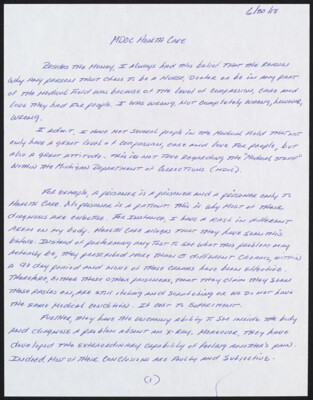 6/30/15
MDOC Health Care
Besides the Money, I always had this belief that the reason
why any persons that chose to be a Nurse, Doctor or be in any part
of the Medical Field was because of the level of compassion, care and
love they had for people. I was wrong. Not completely wrong, however,
wrong.
I admit, I have met several people in the Medical Field that not
only have a great level of compassion, care and love for people, but
also a great attitude. This is not true regarding the "Medical Staff"
within the Michigan Department of Corrections (MDOC).
For example, a prisoner is a prisoner and a prisoner only to
Health Care. No prisoner is a patient. This is why most of their
diagnosis are
For instance, I have a rash in different
areas on my body. Health Care alleges that they have seen this
before. Instead of performing any test to see what this problem may
actually be, they prescribed more than
different creams, within
a 90 day period and none of these creams have been effective.
Therefore,
these other prisoners, that they claim they seen
these rashes on, are still itching and scratching or we do not have
the same Medical condition. It cost to experiment.
Further, they have the uncanny ability to see inside the body
and diagnose a problem absent an X-Ray. Moreover, they have
developed the extraordinary capability of feeling another's pain.
Indeed, most of their conclusions are faulty and subjective.
(1)